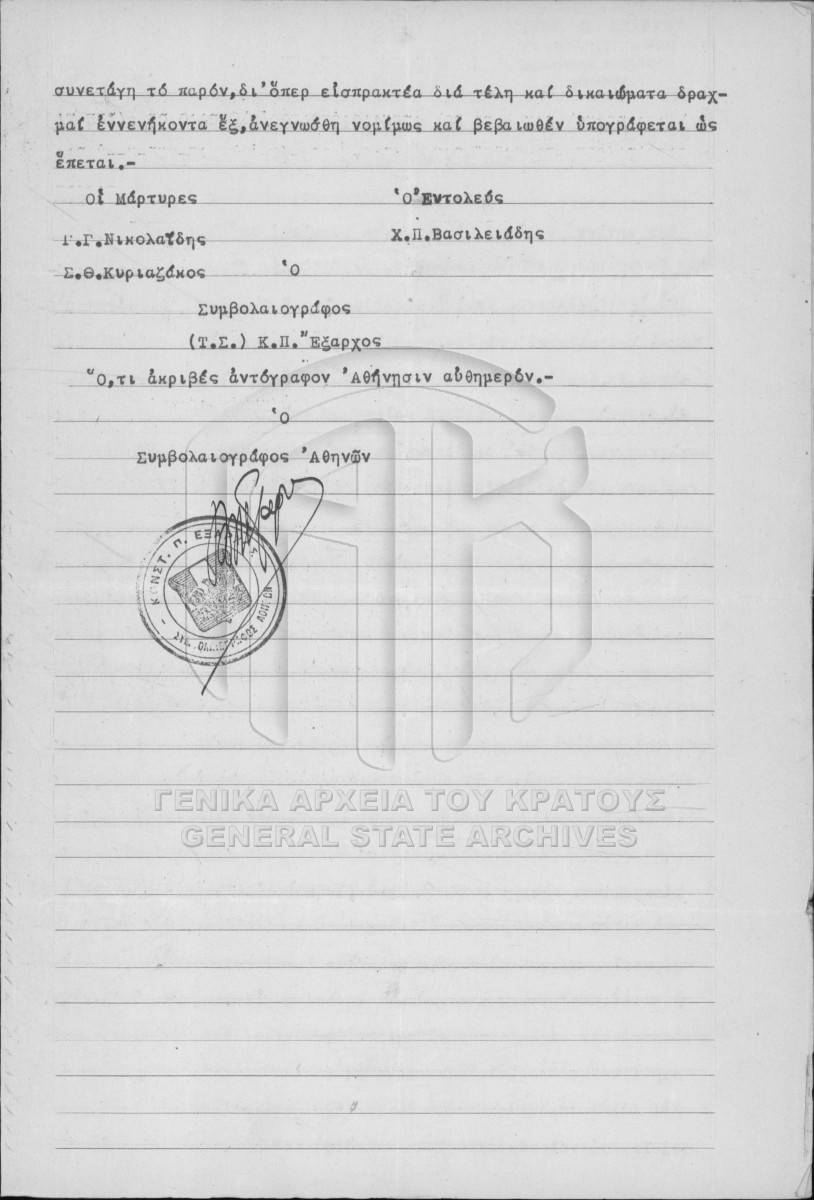 συνετάγη τό παρόν,δι'ὅπερ εἰσπρακτέα διά τέλη καί δικαιώματα δραχ-
μαί ἐννενήκοντα ἕξ,ἀνεγνώσθη νομίμως καί βεβαιωθέν ὑπογράφεται ὡς
ἕπεται.-
Οἱ Μάρτυρες
Ὁ Ἐντολεύς
Γ.Γ.Νικολαΐδης
Χ.Π.Βασιλειάδης
Σ.Θ.Κυριαζάκος
Ὁ
Συμβολαιογράφος
(Τ.Σ.) Κ.Π.Ἔξαρχος
Ὅ,τι ἀκριβές ἀντόγραφον Ἀθήνησιν αὐθημερόν.-
Ὁ
Συμβολαιογράφος Ἀθηνῶν
ΚΩΝΣΤ. Π. ΕΞΑ
ΓΕΝΙΚΑ ΑΡΧΕΙΑ ΤΟΥ ΚΡΑΤΟΥΣ
GENERAL STATE ARCHIVES